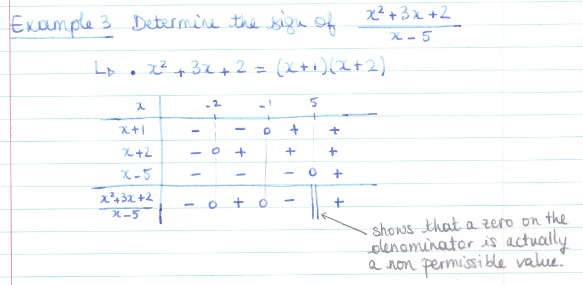 Example 3 Determine the sign of x² + 3x + 2 / x - 5
↳ • x² + 3x + 2 = (x+1)(x+2)
x -2 -1 5
x+1 - - 0 + +
x+2 - 0 + + +
x-5 - - - 0 +
x²+3x+2 / x-5 - 0 + 0 - || +
shows that a zero on the
denominator is actually
a non permissible value.